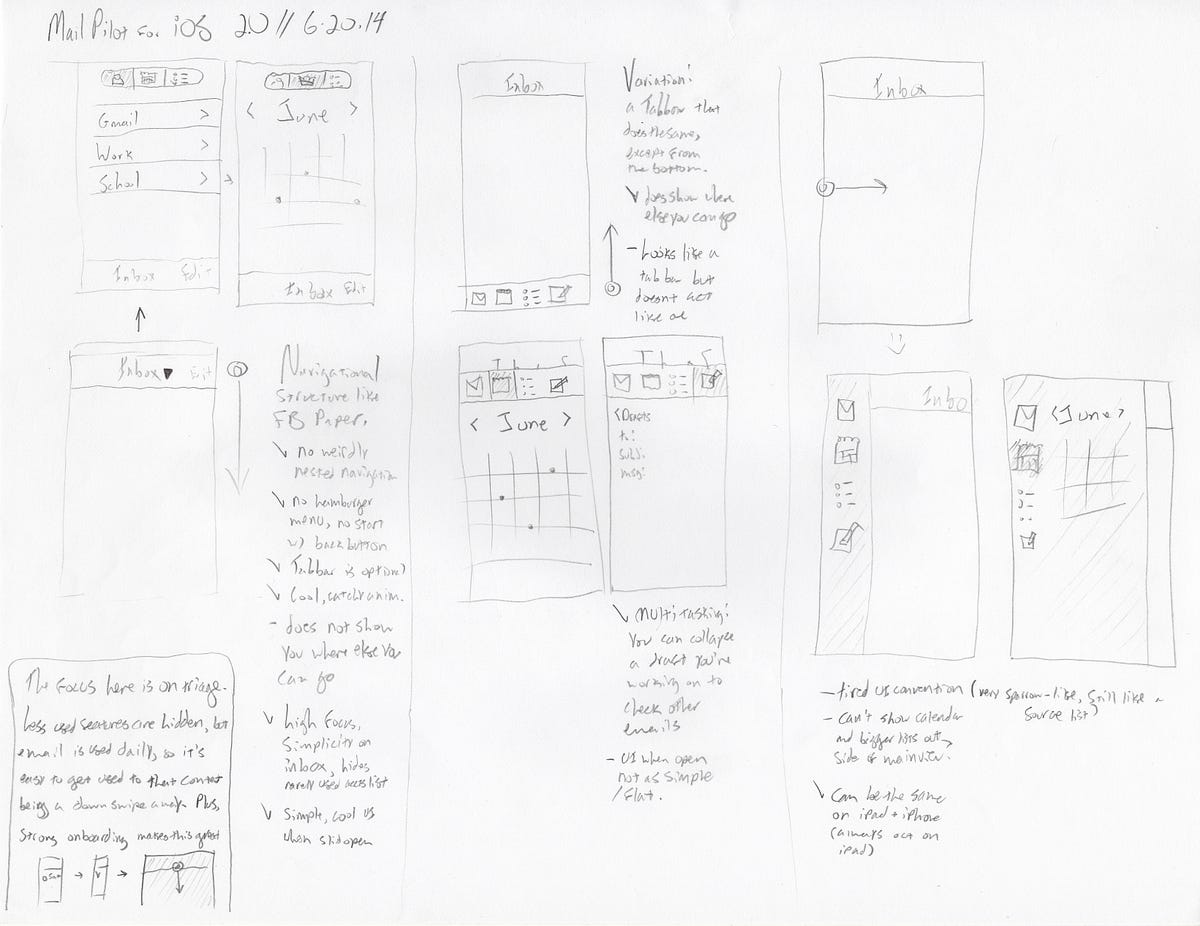 Mail Pilot for iOS 2.0 // 6.20.14
Gmail >
Work >
School >
Inbox Edit
< June >
Inbox Edit
Inbox Edit
Navigational
Structure like
FB Paper.
no weirdly
nested navigation
no hamburger
menu, no start
w) back button
Tabbar is optional
Cool, catchy anim.
- does not show
you where else you
can go
high focus,
simplicity on
inbox, hides
rarely used accts list
Simple, cool UI
when slid open
The focus here is on triage.
Less used features are hidden, but
email is used daily, so it's
easy to get used to that context
being a down swipe away. Plus,
strong onboarding makes this great
Inbox
Variation:
a Tabbar that
does the same,
except from
the bottom.
does show where
else you can go
- Looks like a
tab bar but
doesn't act
like one
< June >
<Drafts
to:
subj:
msg:
Multitasking:
You can collapse
a draft you're
working on to
check other
emails
- UI when open
not as simple
/flat.
Inbox
Inbo
<June>
- tired UI convention (very sparrow-like, still like a
source list)
- Can't show calendar
and bigger lists out
side of main view.
Can be the same
on iPad + iPhone
(always out on
iPad)